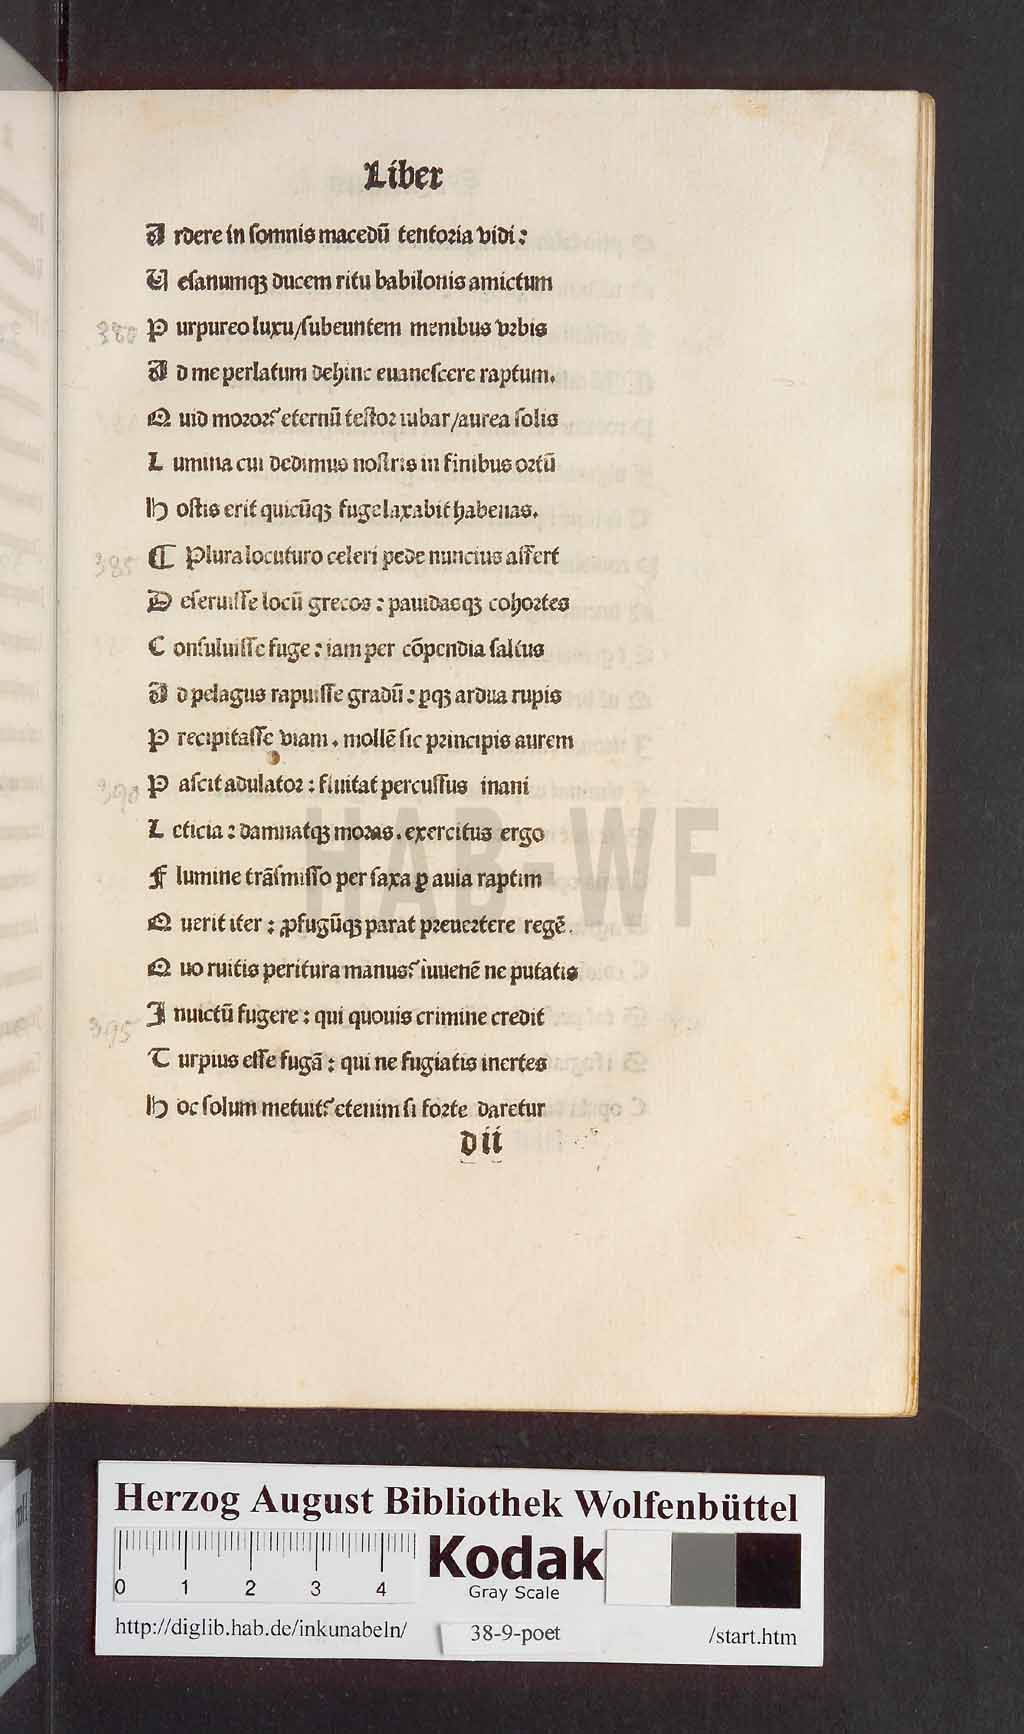 Liber
A rdere in somnis macedū tentoria vidi:
V esanumqꝫ ducem ritu babilonis amictum
380 P urpureo luxu/subeuntem menibus vrbis
A d me perlatum dehinc euanescere raptum.
Q uid moror? eternū testor iubar/aurea solis
L umina cui dedimus nostris in finibus ortū
H ostis erit quicūqꝫ fuge laxabit habenas.
385 ¶ Plura locuturo celeri pede nuncius affert
D eseruisse locū grecos: pauidasqꝫ cohortes
C onsuluisse fuge: iam per cōpendia saltus
A d pelagus rapuisse gradū: ꝑqꝫ ardua rupis
P recipitasse viam. mollē sic principis aurem
390 P ascit adulator: fluitat percussus inani
L eticia: damnatqꝫ moras. exercitus ergo
F lumine trāsmisso per saxa ꝑ auia raptim
Q uerit iter: ꝓfugūqꝫ parat preuertere regē.
Q uo ruitis peritura manus? iuuenē ne putatis
395 I nuictū fugere: qui quouis crimine credit
T urpius esse fugā: qui ne fugiatis inertes
H oc solum metuit? etenim si forte daretur
d ii
HAB-WF
Herzog August Bibliothek Wolfenbüttel
0 1 2 3 4
Kodak
Gray Scale
http://diglib.hab.de/inkunabeln/ 38-9-poet /start.htm